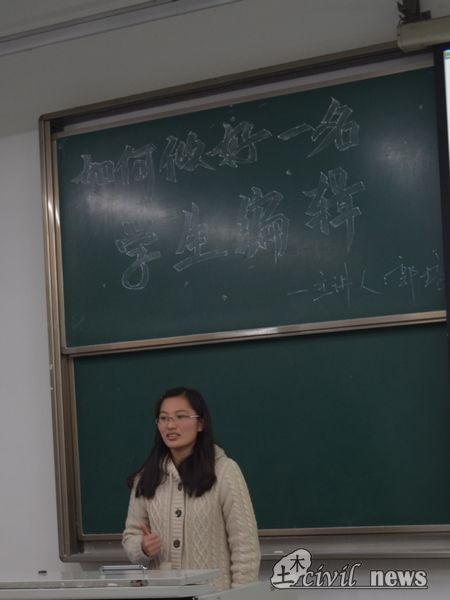 如何做好一名
学生编辑
—主讲人:郭
土木 civil news